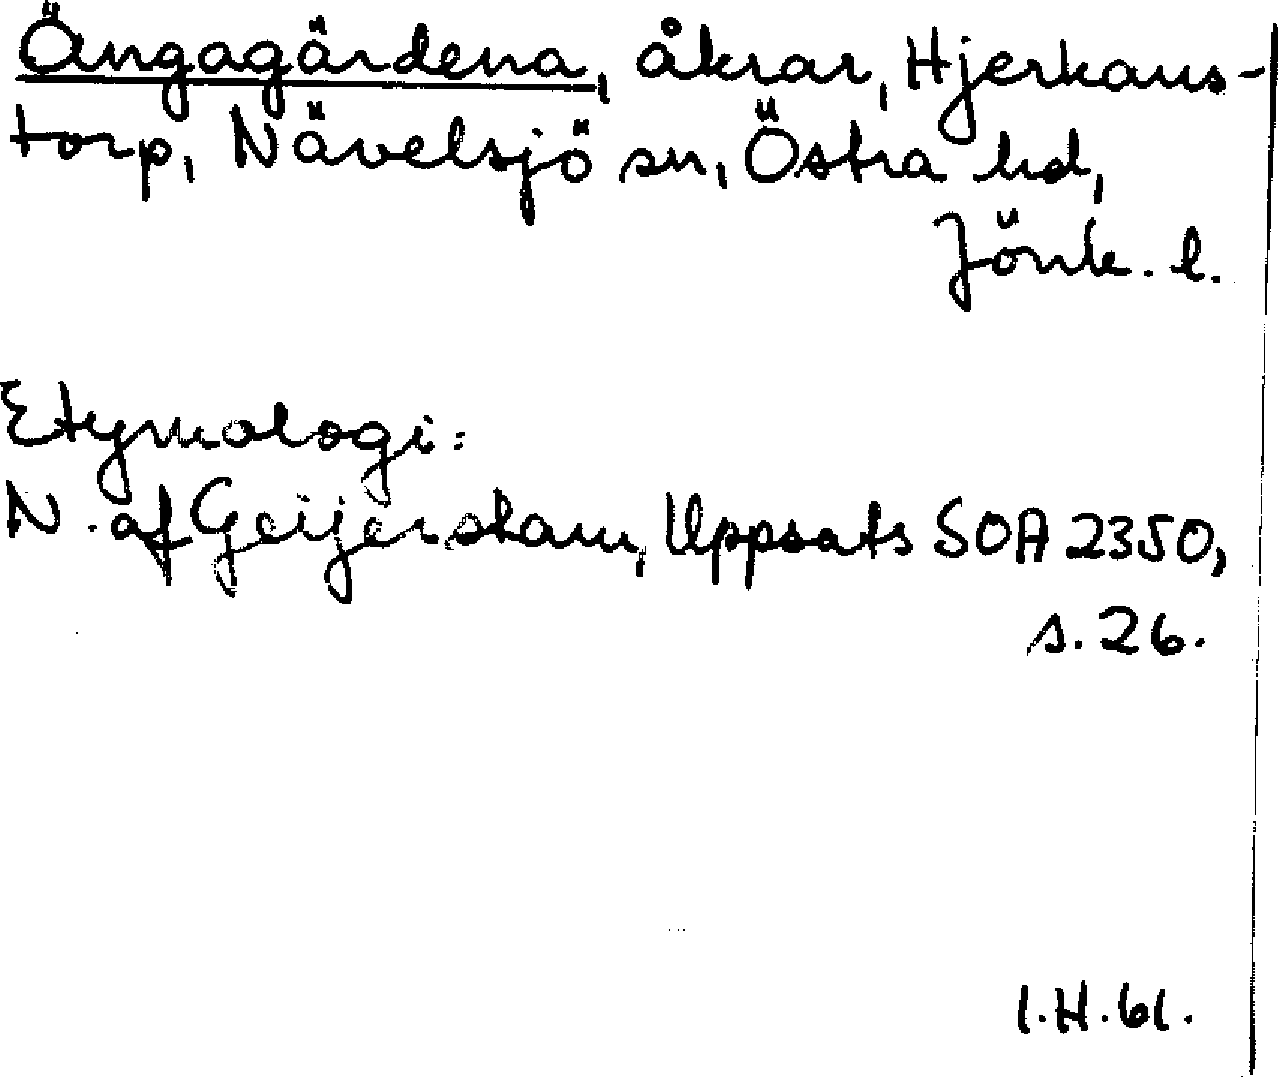 Ängagärdena, åkrar, Hjerkans-
torp, Nävelsjö sn, Östra hd,
Jönk. l.
Etymologi:
N. af Geijerstam, Uppsats SOA 2350,
s. 26.
I.H. 61.